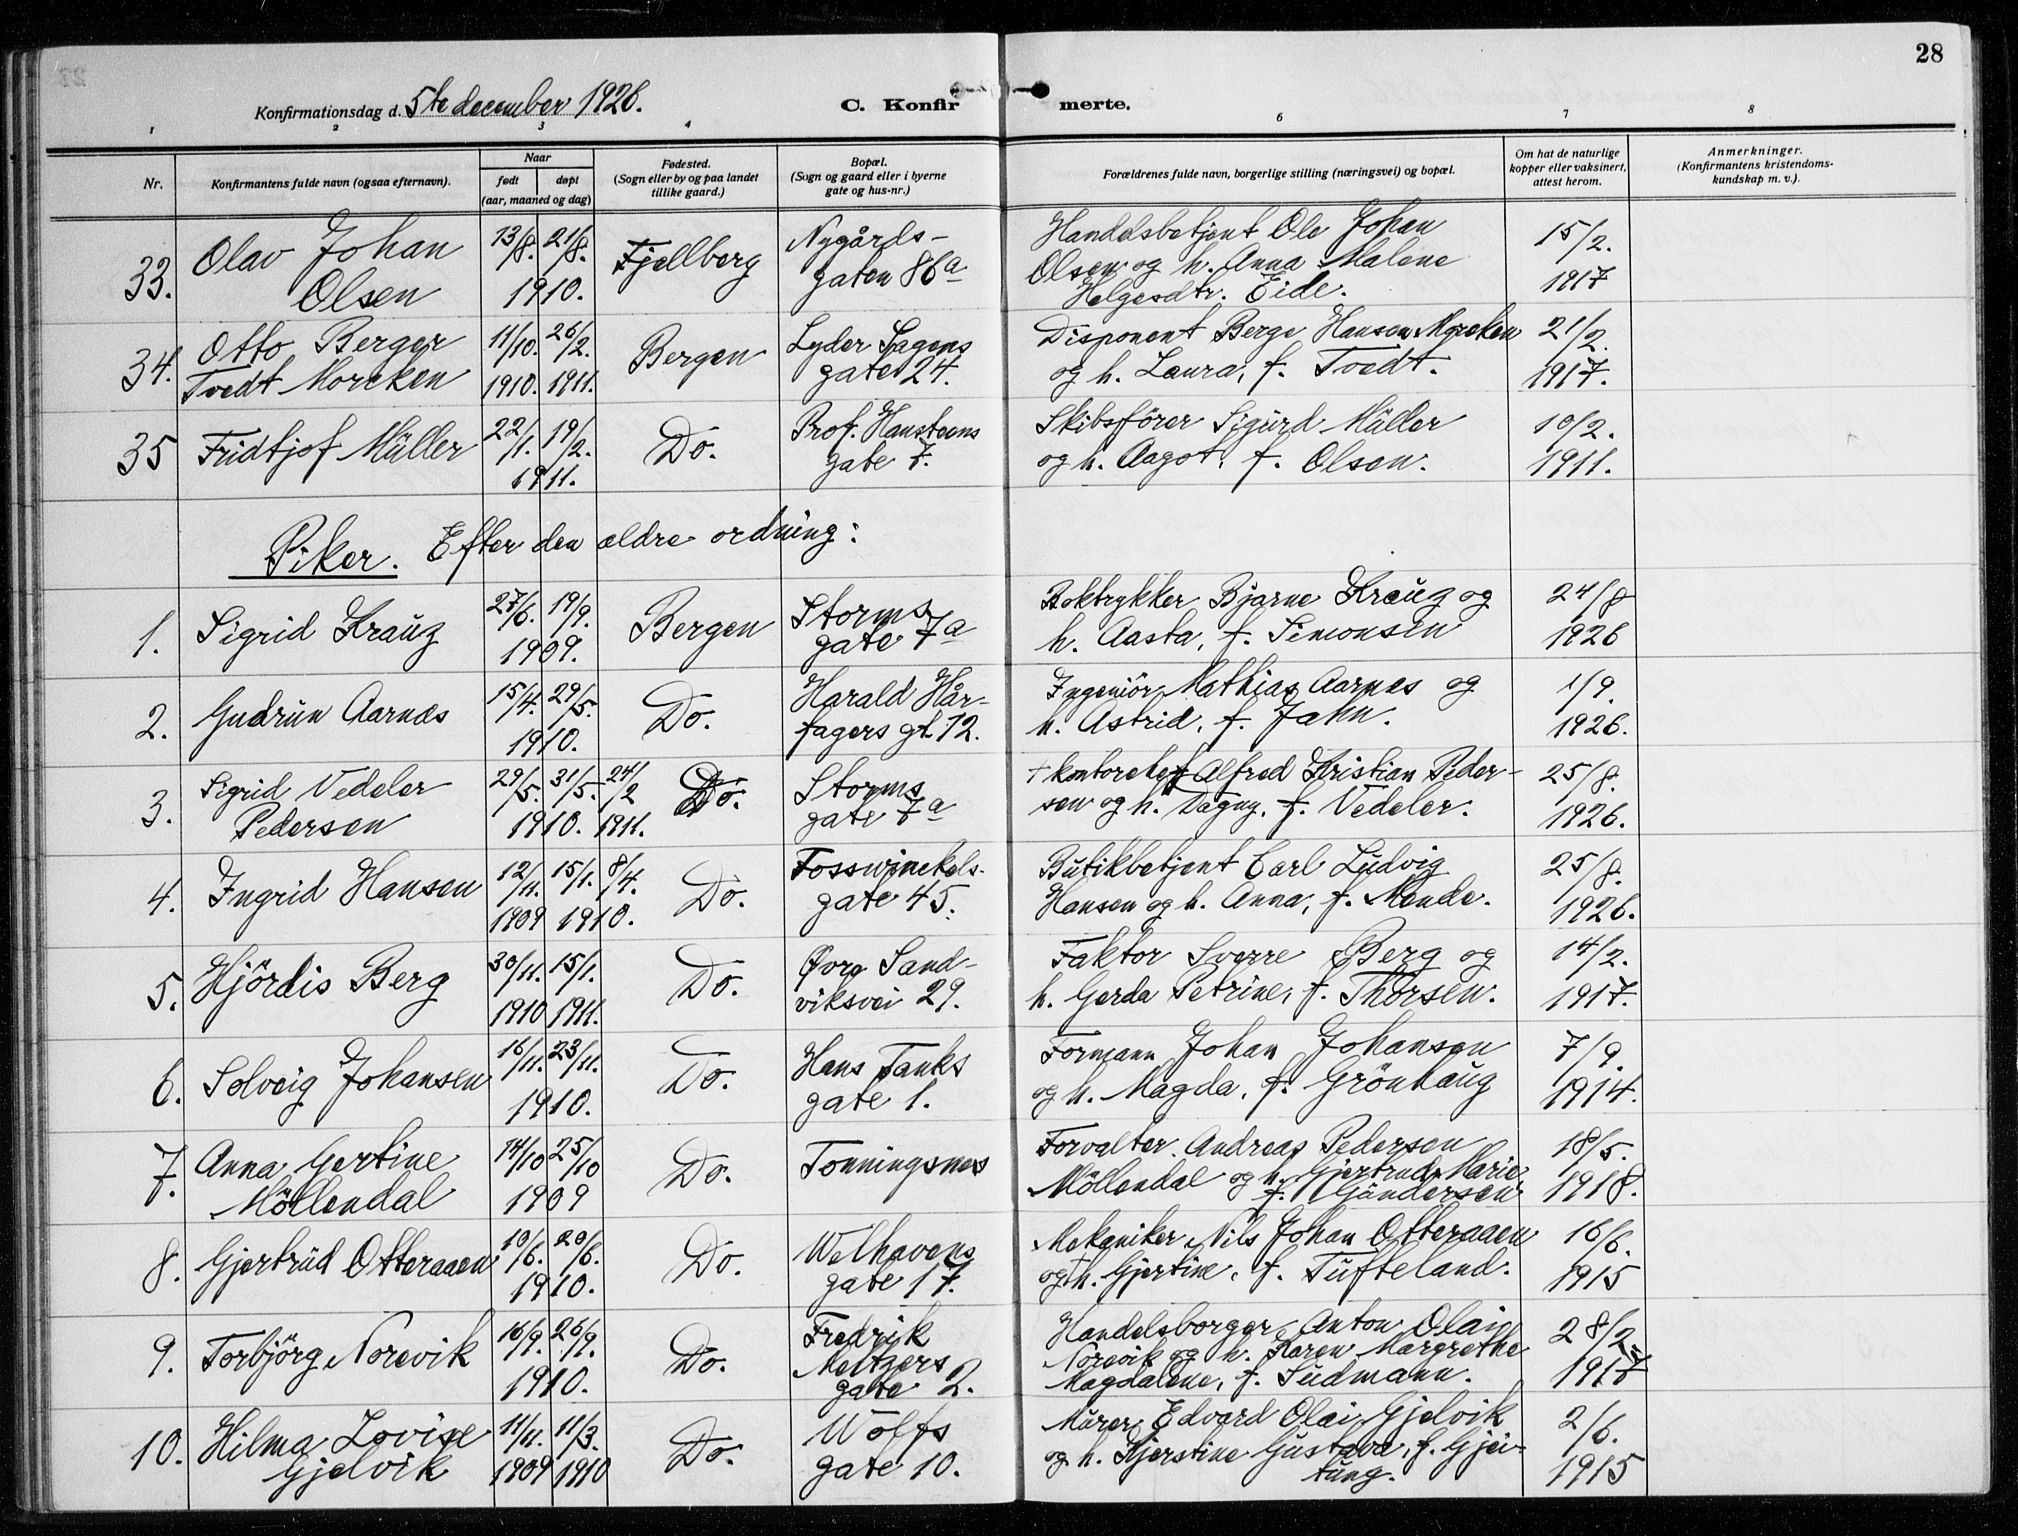 28
Konfirmationsdag d. 5te december 1926.
C. Konfirmerte.
1 2 3 4 6 7 8
Nr.
Konfirmantens fulde navn (ogsaa efternavn).
Naar
født
døpt
(aar, maaned og dag)
Fødested.
(Sogn eller by og paa landet
tillike gaard.)
Bopæl.
(Sogn og gaard eller i byerne
gate og hus-nr.)
Forældrenes fulde navn, borgerlige stilling (næringsvei) og bopæl.
Om hat de naturlige
kopper eller vaksinert,
attest herom.
Anmerkninger.
(Konfirmantens kristendoms-
kundskap m. v.).
33. Olav Johan
Olsen
13/8. 21/8.
1910.
Fjellberg
Nygårds-
gaten 86a
Handelsbetjent Ole Johan
Olsen og h. Anna Malene
Helgesdtr. Eide.
15/2.
1917
34. Otto Berger
Tvedt Morcken
11/10. 26/2.
1910. 1911.
Bergen
Lyder Sagens
gate 24.
Disponent Berge Hansen Morcken
og h. Laura, f. Tvedt.
21/2.
1917.
35 Fridtjof Müller
22/1. 19/2.
1911.
Do.
Prof. Hansteens
gate 7.
Skibsfører Sigurd Müller
og h. Aagot, f. Olsen.
10/2.
1911.
Piker. Efter den ældre ordning:
1. Sigrid Krauz
27/6. 19/9.
1909.
Bergen
Storms
gate 7a
Boktrykker Bjarne Krauz og
h. Aasta, f. Simonsen
24/8
1926
2. Gudrun Aarnæs
15/4. 29/5.
1910.
Do.
Harald Hår-
fagers gt. 12.
Ingeniör Mathias Aarnæs og
h. Astrid, f. Jahn.
1/9.
1926.
3. Sigrid Vedeler
Pedersen
29/5. 31/5. 24/2
1910. 1911.
Do.
Storms
gate 7a
† kontorchef Alfred Kristian Peder-
sen og h. Dagny, f. Vedeler.
25/8.
1926.
4. Ingrid Hansen
12/11. 15/1. 8/4.
1909 1910.
Do.
Fosswinckels-
gate 45.
Butikbetjent Carl Ludvig
Hansen og h. Anna, f. Monde.
25/8.
1926.
5. Hjördis Berg
30/11. 15/1.
1910 1911.
Do.
Øvre Sand-
viksvei 29.
Faktor Sverre Berg og
h. Gerda Petrine, f. Thorsen.
14/2.
1917.
6. Solveig Johansen
16/11. 23/11.
1910.
Do.
Hans Tanks
gate 1.
Formann Johan Johansen
og h. Magda, f. Grönhaug
7/9.
1914.
7. Anna Gertine
Möllendal
14/10 25/10
1909
Do.
Tonningsnes
Forvalter Andreas Pedersen
Möllendal og h. Gjertrud Marie
f. Gundersen
18/5.
1918.
8. Gjertrud Otteraaen
10/6. 20/6.
1910.
Do.
Welhavens
gate 17.
Mekaniker Nils Johan Otteraaen
og h. Gjertine, f. Tufteland.
16/6.
1915
9. Torbjörg Norevik
16/9. 26/9.
1910.
Do.
Fredrik
Meltzers
gate 2.
Handelsborger Anton Olai
Norevik og h. Karen Margrethe
Magdalene, f. Sudmann.
28/2
1917
10. Hilma Lovise
Gjelvik
11/11. 11/3.
1909 1910
Do.
Wolffs
gate 10.
Murer Edvard Olai Gjelvik
og h. Kjerstine Gustava, f. Gjei-
tung.
2/6.
1915